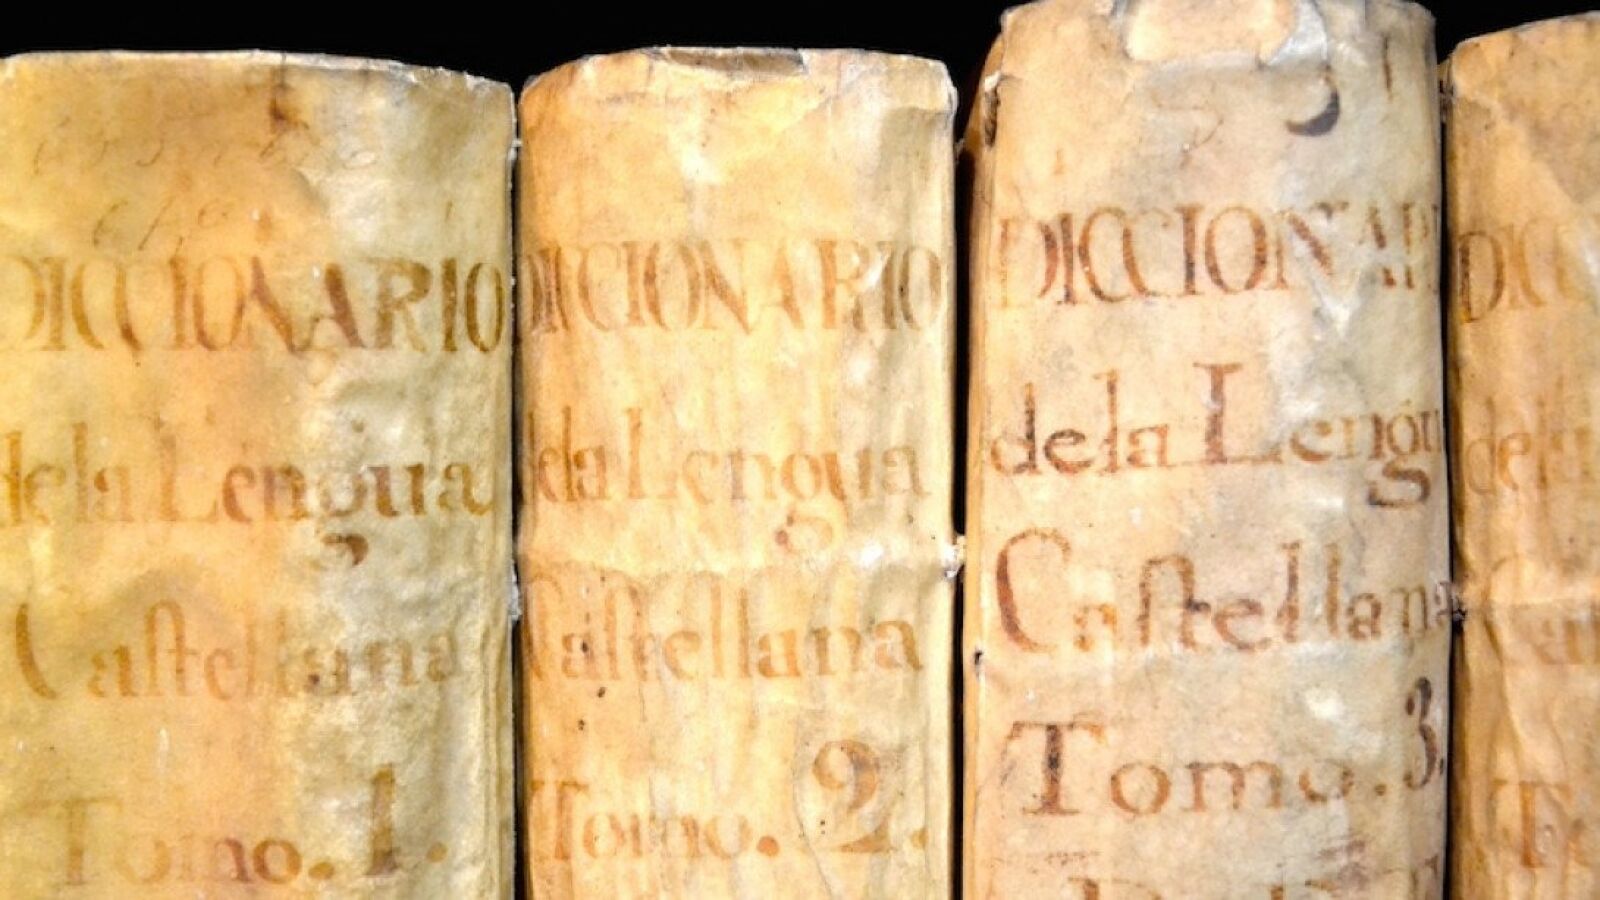 DICCIONARIO
dela Lengua
Caſtellana
Tomo. 1.
DICCIONARIO
dela Lengua
Caſtellana
Tomo. 2.
DICCIONAR
dela Lengu
Caſtellana
Tomo. 3.
DICC
dela
Cas
To